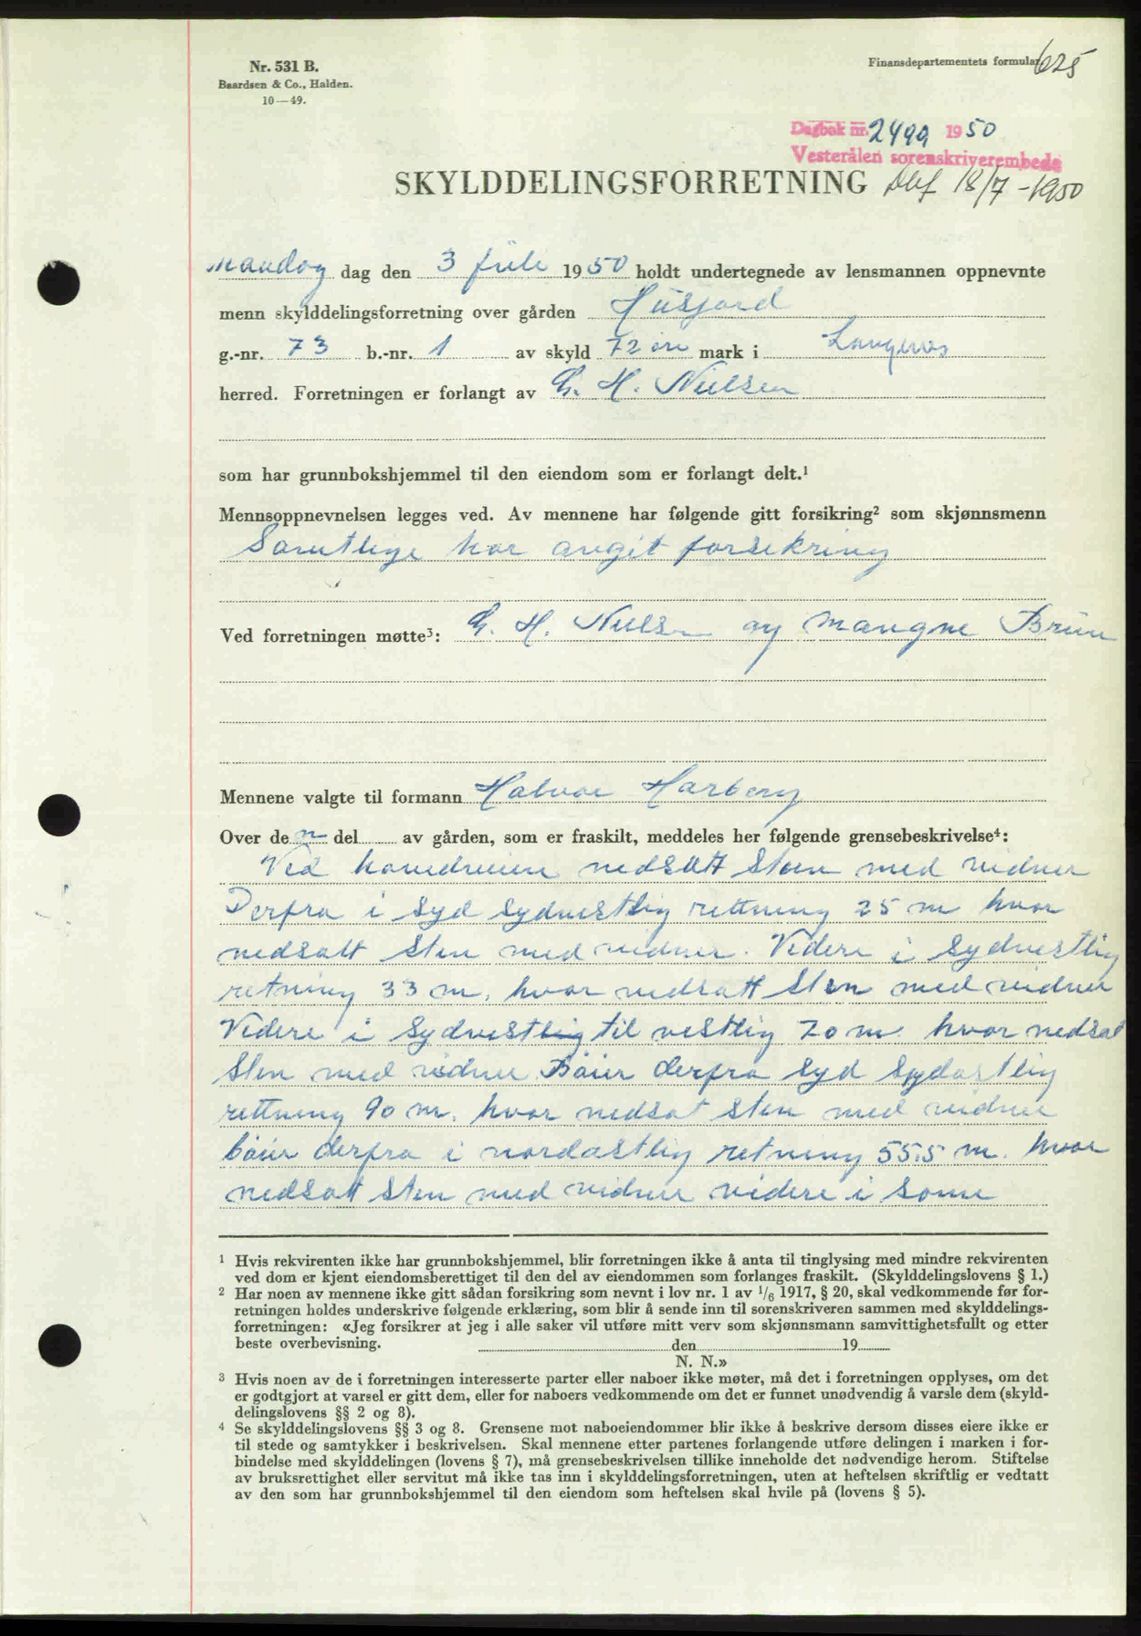 Nr. 531 B.
Baardsen & Co., Halden.
10—49.
Finansdepartementets formular
625
Dagbok nr. 2499 1950
Vesterålen sorenskriverembede
SKYLDDELINGSFORRETNING
18/7-1950
Mandag dag den 3 juli 1950 holdt undertegnede av lensmannen oppnevnte
menn skylddelingsforretning over gården Husjord
g.-nr. 73 b.-nr. 1 av skyld 72 øre mark i Langenes
herred. Forretningen er forlangt av G. H. Nielsen
som har grunnbokshjemmel til den eiendom som er forlangt delt.¹
Mennsoppnevnelsen legges ved. Av mennene har følgende gitt forsikring² som skjønnsmenn
Samtlige har avgit forsikring
Ved forretningen møtte³: G. H. Nielsen og Mangne Bruun
Mennene valgte til formann Halvor Harberg
Over den del av gården, som er fraskilt, meddeles her følgende grensebeskrivelse⁴:
Ved hovedveien nedsatt sten med vidner
Derfra i syd sydvestlig rettning 25 m hvor
nedsatt sten med vidner. Videre i sydvestlig
retning 33 m. hvor nedsatt sten med vidner
Videre i sydvestlig til vestlig 70 m. hvor nedsat
sten med vidner Bøier derfra syd sydøstlig
rettning 90 m. hvor nedsat sten med vidner
bøier derfra i nordøstlig retning 55.5 m. hvor
nedsatt sten med vidner videre i same
¹ Hvis rekvirenten ikke har grunnbokshjemmel, blir forretningen ikke å anta til tinglysing med mindre rekvirenten
ved dom er kjent eiendomsberettiget til den del av eiendommen som forlanges fraskilt. (Skylddelingslovens § 1.)
² Har noen av mennene ikke gitt sådan forsikring som nevnt i lov nr. 1 av 1/6 1917, § 20, skal vedkommende før for-
retningen holdes underskrive følgende erklæring, som blir å sende inn til sorenskriveren sammen med skylddelings-
forretningen: «Jeg forsikrer at jeg i alle saker vil utføre mitt verv som skjønnsmann samvittighetsfullt og etter
beste overbevisning. den 19
N. N.»
³ Hvis noen av de i forretningen interesserte parter eller naboer ikke møter, må det i forretningen opplyses, om det
er godtgjort at varsel er gitt dem, eller for naboers vedkommende om det er funnet unødvendig å varsle dem (skyld-
delingslovens §§ 2 og 8).
⁴ Se skylddelingslovens §§ 3 og 8. Grensene mot naboeiendommer blir ikke å beskrive dersom disses eiere ikke er
til stede og samtykker i beskrivelsen. Skal mennene etter partenes forlangende utføre delingen i marken i for-
bindelse med skylddelingen (lovens § 7), må grensebeskrivelsen tillike inneholde det nødvendige herom. Stiftelse
av bruksrettighet eller servitut må ikke tas inn i skylddelingsforretningen, uten at heftelsen skriftlig er vedtatt
av den som har grunnbokshjemmel til den eiendom som heftelsen skal hvile på (lovens § 5).